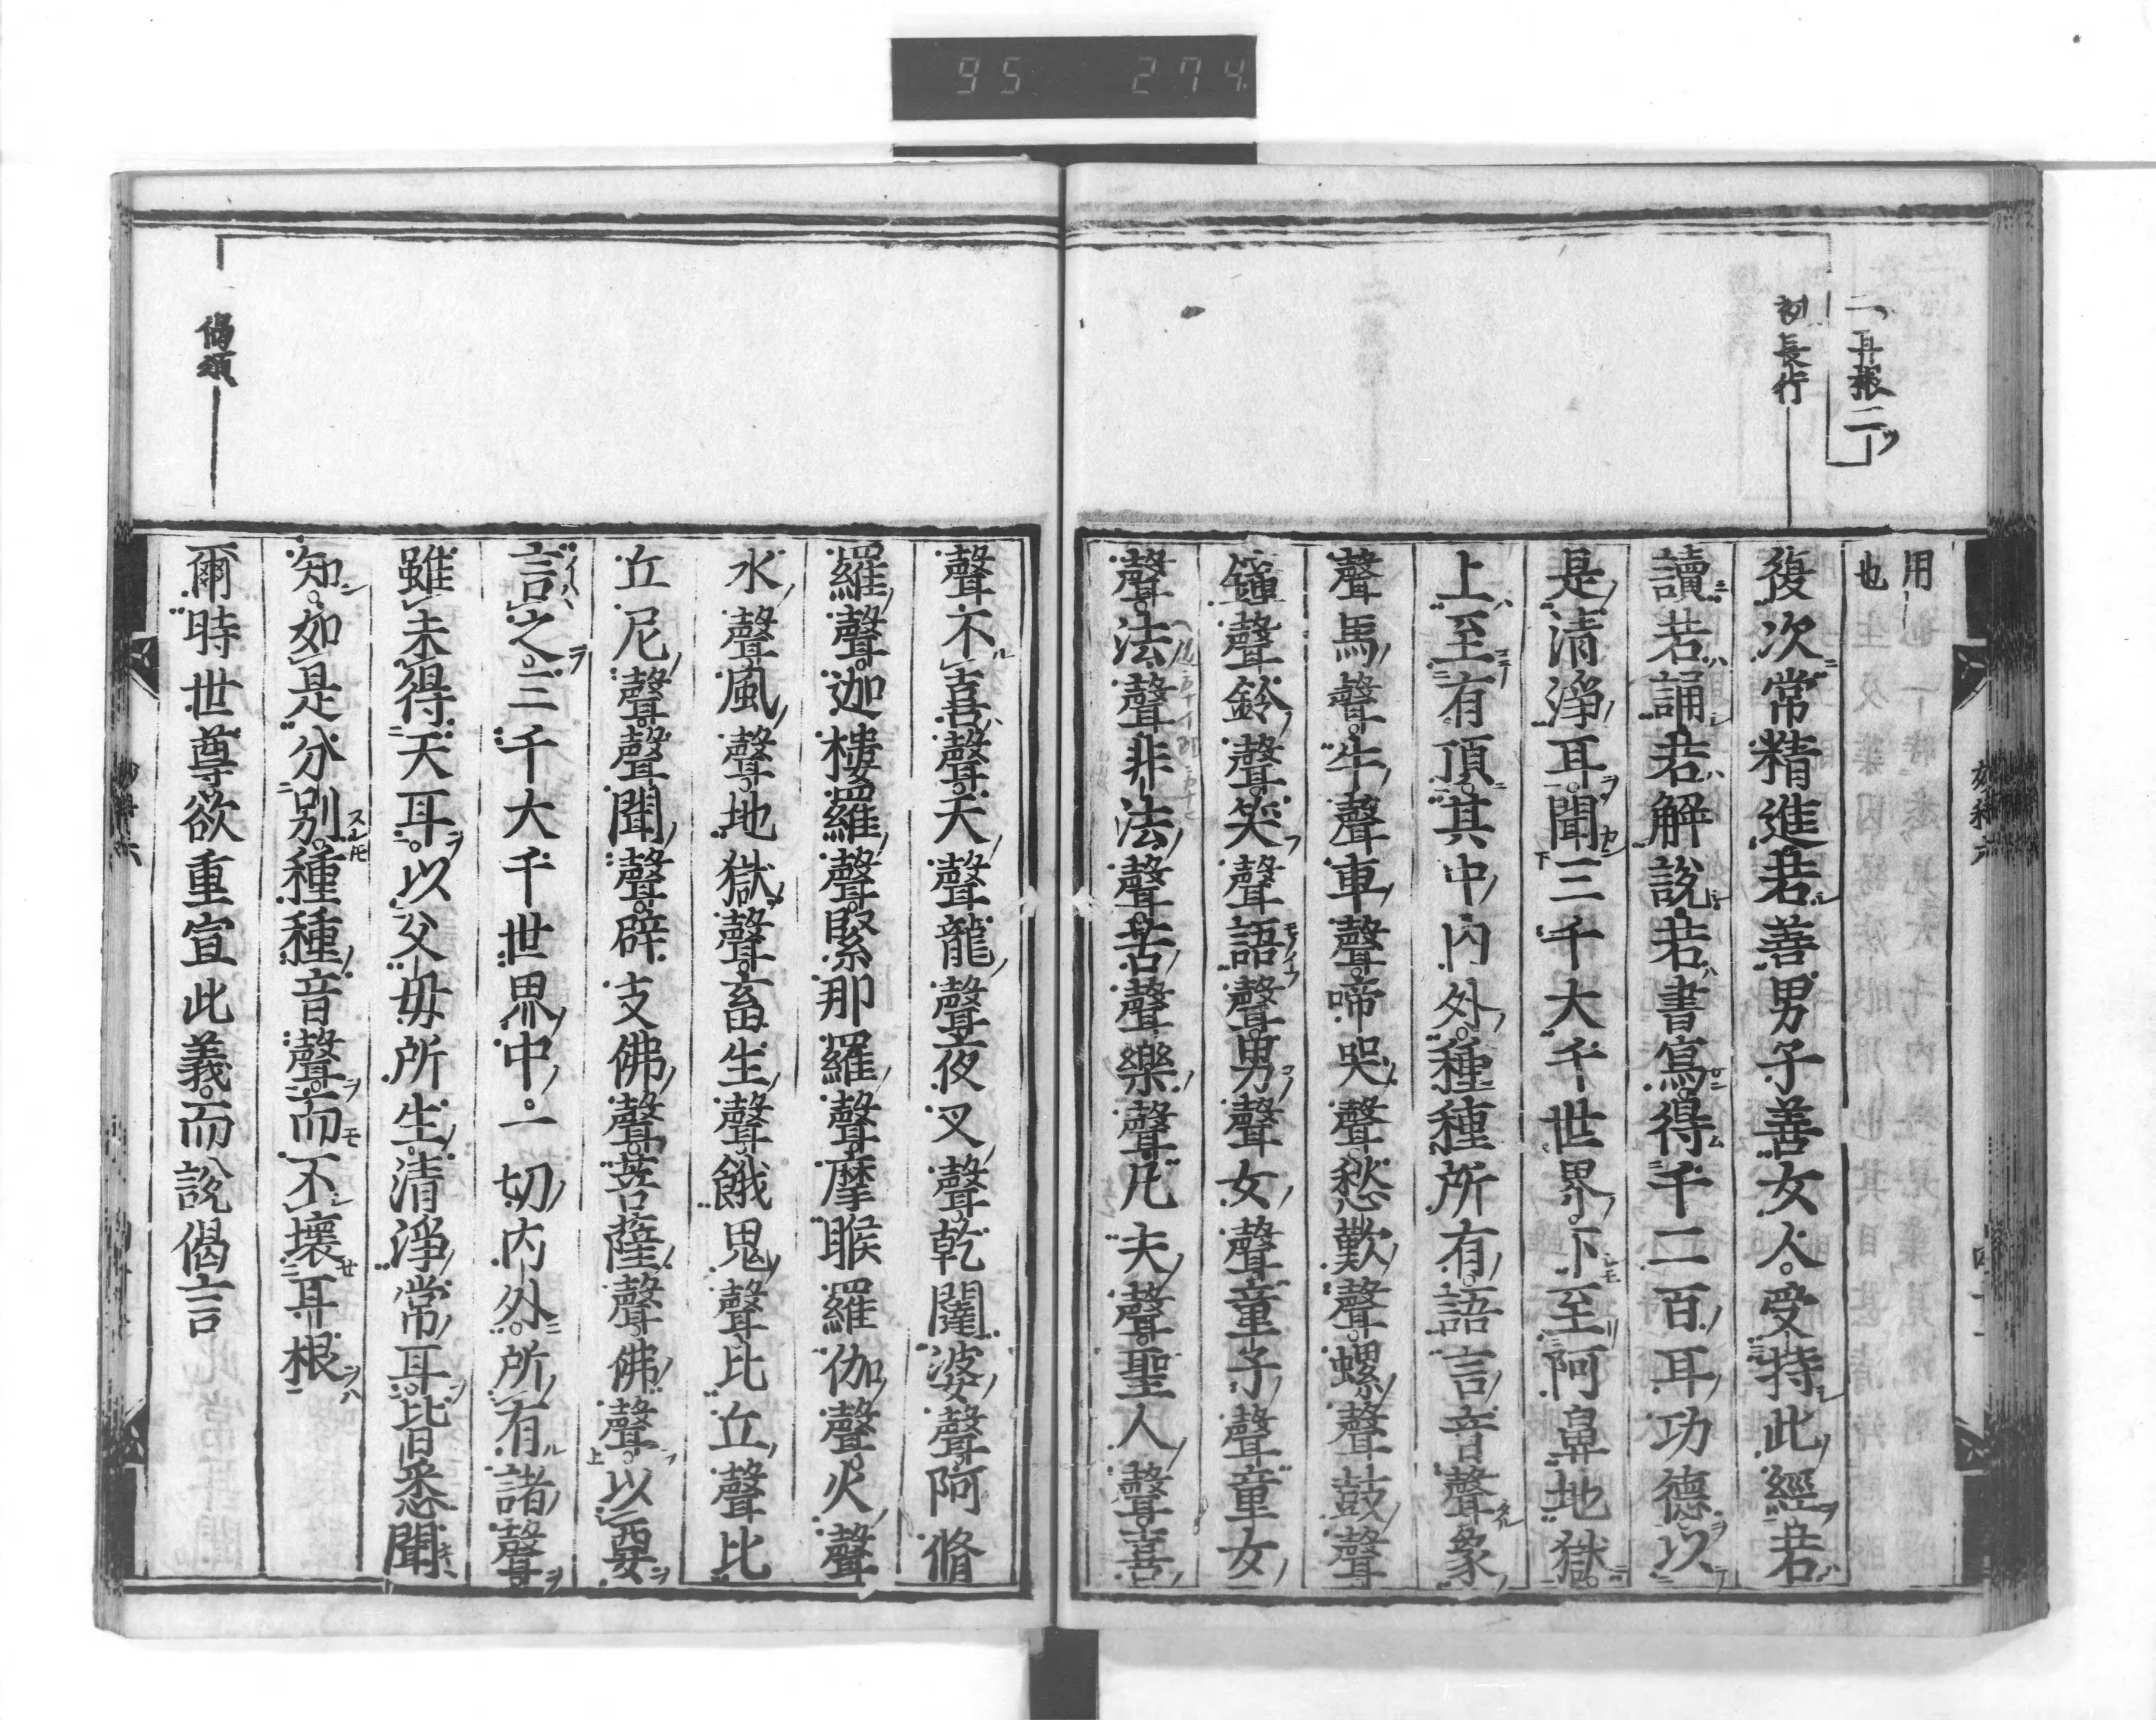 95 274
二耳根二
初長行
用
也
復次常精進若善男子善女人受持此經若
讀若誦若解說若書寫得千二百耳功德以
是清淨耳聞三千大千世界下至阿鼻地獄
上至有頂其中內外種種所有語言音聲象
聲馬聲牛聲車聲啼哭聲愁歎聲螺聲鼓聲
鐘聲鈴聲笑聲語聲男聲女聲童子聲童女
聲法聲非法聲苦聲樂聲凡夫聲聖人聲喜
聲不喜聲天聲龍聲夜叉聲乾闥婆聲阿脩
羅聲迦樓羅聲緊那羅聲摩睺羅伽聲火聲
水聲風聲地獄聲畜生聲餓鬼聲比丘聲比
丘尼聲聲聞聲辟支佛聲菩薩聲佛聲以要
言之三千大千世界中一切內外所有諸聲
雖未得天耳以父母所生清淨常耳皆悉聞
知如是分別種種音聲而不壞耳根
偈頌
爾時世尊欲重宣此義而說偈言